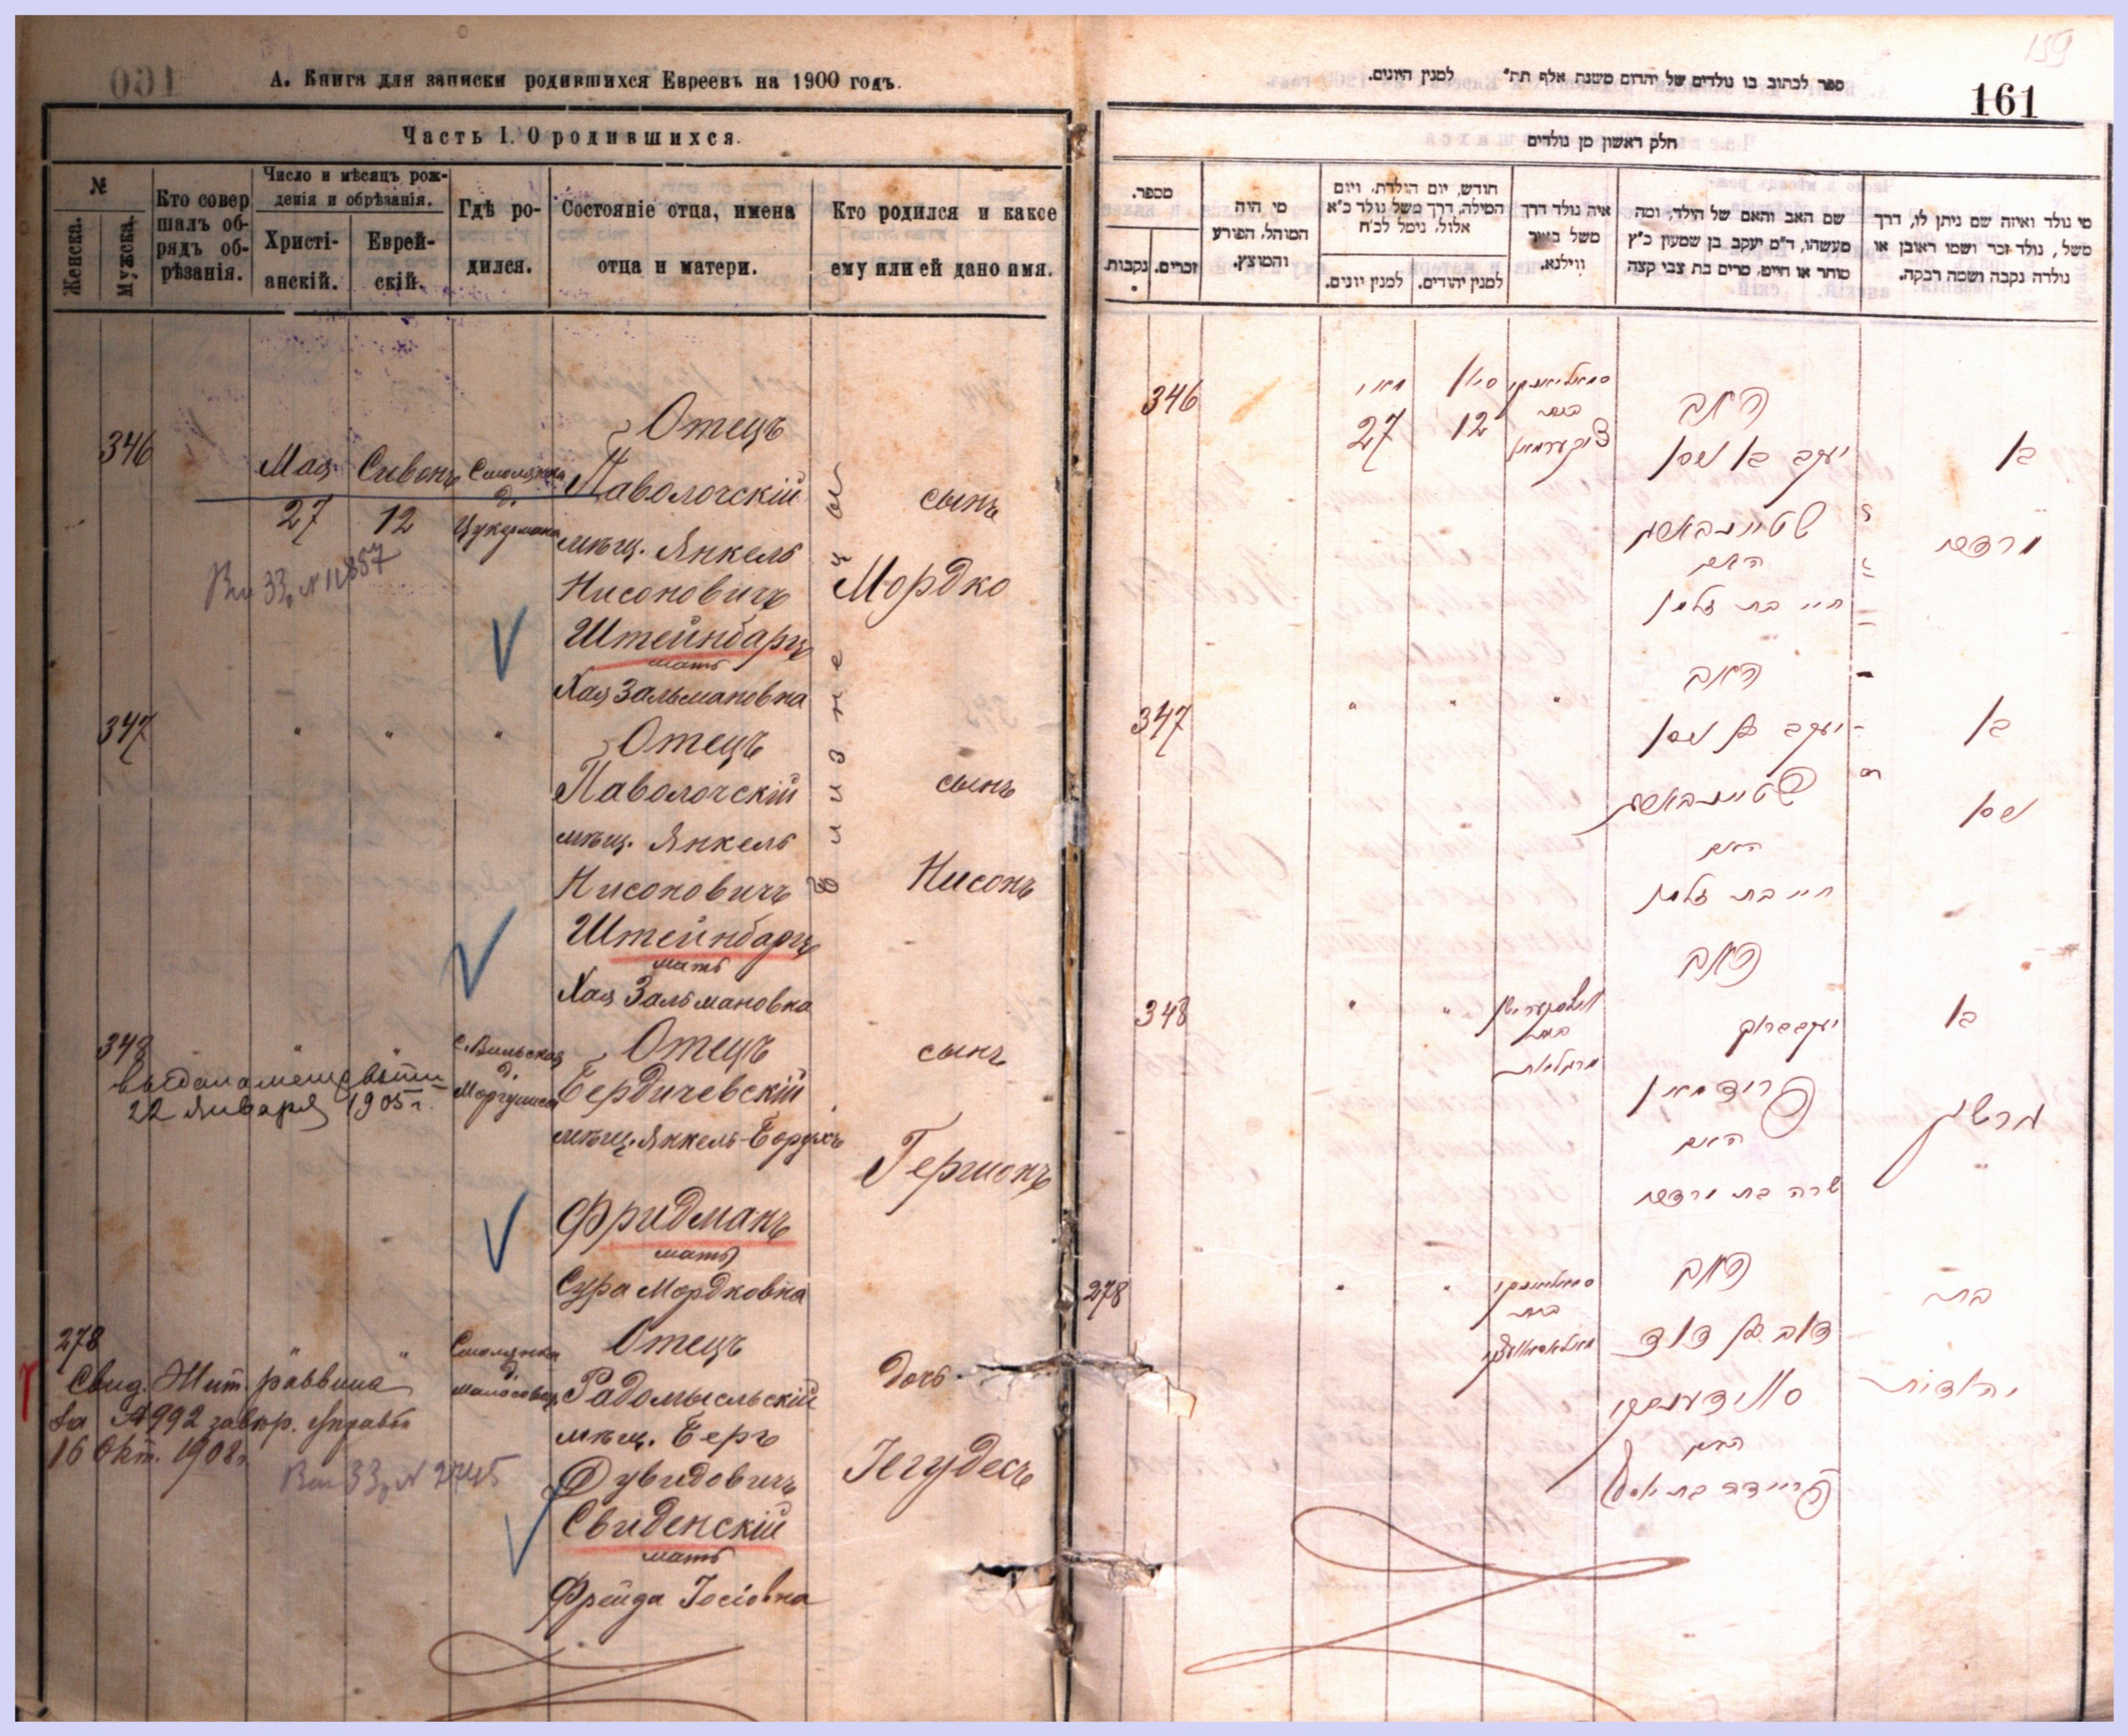 160
А. Книга для записки родившихся Евреевъ на 1900 годъ.
Часть I. О родившихся.
№
Женска.
Мужска.
Кто совер
шалъ об-
рядъ об-
рѣзанія.
Число и мѣсяцъ рож-
денія и обрѣзанія.
Христі-
анскій.
Еврей-
скій.
Гдѣ ро-
дился.
Состояніе отца, имена
отца и матери.
Кто родился и какое
ему или ей дано имя.
346
Мая Сивонъ Смолянка
27 12 д.
Цукермана
Отецъ
Паволочскій
мѣщ. Янкель
Нисоновичъ
Штейнбаргъ
мать
Хая Зальмановна
сынъ
Мордко
Близнецы
347
" " "
Отецъ
Паволочскій
мѣщ. Янкель
Нисоновичъ
Штейнбаргъ
мать
Хая Зальмановна
сынъ
Нисонъ
348
" "
выдана
22 Января 1905 г.
д.
Отецъ
Бердичевскій
мѣщ. Янкель-Борухъ
Фридманъ
мать
Сура Мордковна
сынъ
Гершонъ
278
" "
Смолянка
д.
Свид. Жит. раввина
за № 992
16 Окт. 1908 г.
Отецъ
Радомысльскій
мѣщ. Беръ
Дувидовичъ
Свиденскій
мать
Фрейда Іосіовна
дочь
Іегудесъ
159
ספר לכתוב בו נולדים של יהדום משנת אלף תת״ למנין היונים.
161
חלק ראשון מן נולדים
מספר.
זכרים.
נקבות.
מי היה
המוהל, הפורע
והמוצץ.
חודש, יום הולדת, ויום
המילה, דרך משל נולד כ״א
אלול, נימל לכ״ח
למנין יהודים.
למנין יונים.
איה נולד דרך
משל בעיר
ווילנא.
שם האב והאם של הילד, ומה
מעשהו, ד״מ יעקב בן שמעון כ״ץ
סוחר או חייט, מרים בת צבי קצה
מי נולד ואיזה שם ניתן לו, דרך
משל, נולד זכר ושמו ראובן או
נולדה נקבה ושמה רבקה.
346
מאי סיון
27 12
בית
צוקערמאן
האב
יעקב בן ניסן
שטיינבארג
האם
חיי בת זלמן
בן
מרדכי
347
" " "
האב
יעקב בן ניסן
שטיינבארג
האם
חיי בת זלמן
בן
ניסן
348
" "
בית
האב
יעקב ברוך
פרידמאן
האם
שרה בת מרדכי
בן
גרשון
278
" "
בית
האב
דוב בן דוד
סווידענסקי
האם
פריידה בת יוסף
בת
יהודית